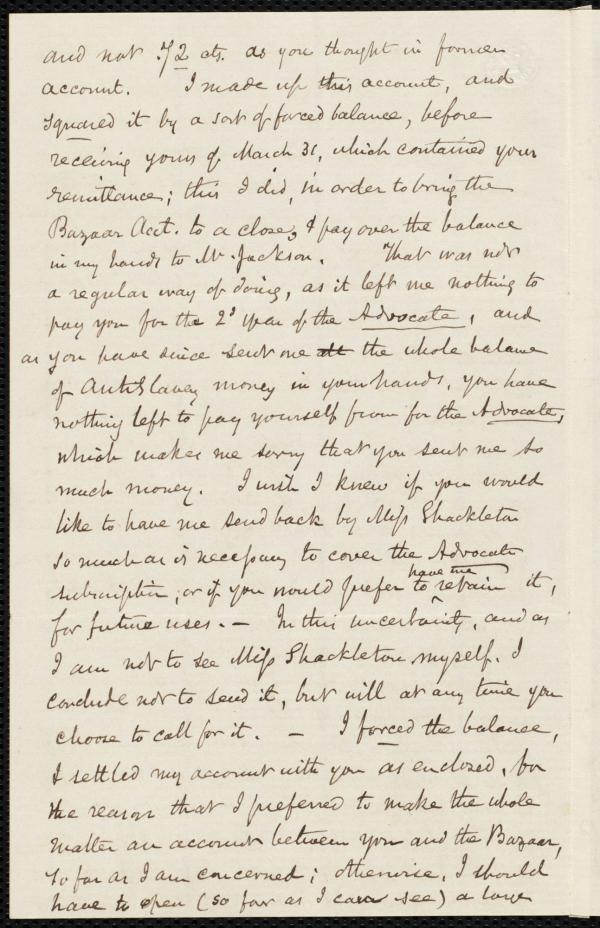 and not .72 cts. as you thought in former
account. I made up this account, and
squared it by a sort of forced balance, before
receiving yours of March 31, which contained your
remittance; this I did, in order to bring the
Bazaar Acct. to a close, & pay over the balance
in my hands to Mr. Jackson. That was not
a regular way of doing, as it left me nothing to
pay you for the 2d year of the Advocate, and
as you have since sent me all the whole balance
of AntiSlavery money in your hands, you have
nothing left to pay yourself from for the Advocate,
which makes me sorry that you sent me so
much money. I wish I knew if you would
like to have me send back by Miss Shackleton
so much as is necessary to cover the Advocate
subscription, or if you would prefer to have me retain it,
for future uses. — In this uncertainty, and as
I am not to see Miss Shackleton myself, I
conclude not to send it, but will at any time you
choose to call for it. — I forced the balance,
I settled my account with you as enclosed, for
the reason that I preferred to make the whole
matter an account between you and the Bazaar,
so far as I am concerned; otherwise, I should
have to open (so far as I can see) a large